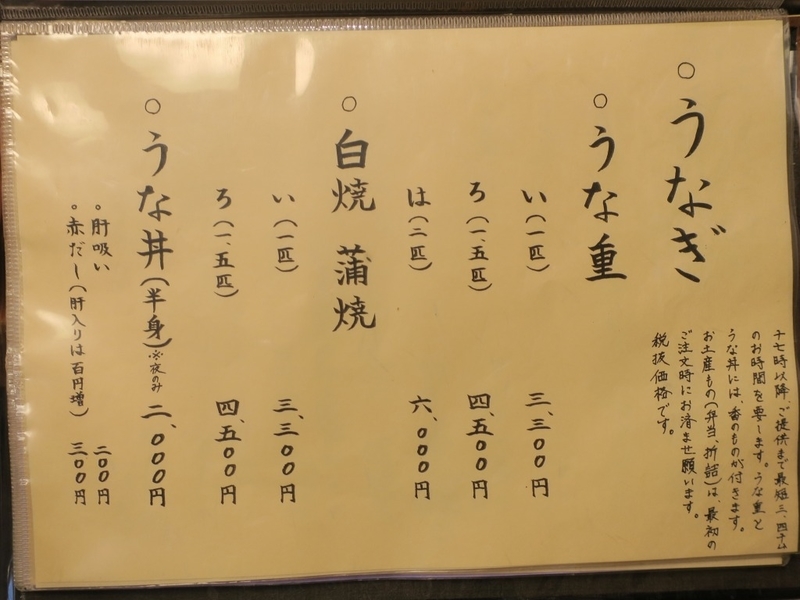 ○うなぎ
十七時以降、ご提供まで最短三、四十分
のお時間を要します。うな重と
うな丼には、香のものが付きます。
お土産もの(弁当、折詰)は、最初の
ご注文時にお済ませ願います。
税抜価格です。
○うな重
い(一匹) 三、三〇〇円
ろ(一、五匹) 四、五〇〇円
は(二匹) 六、〇〇〇円
○白焼 蒲焼
い(一匹) 三、三〇〇円
ろ(一、五匹) 四、五〇〇円
○うな丼(半身)※夜のみ 二、〇〇〇円
○肝吸い 二〇〇円
○赤だし(肝入りは百円増) 三〇〇円